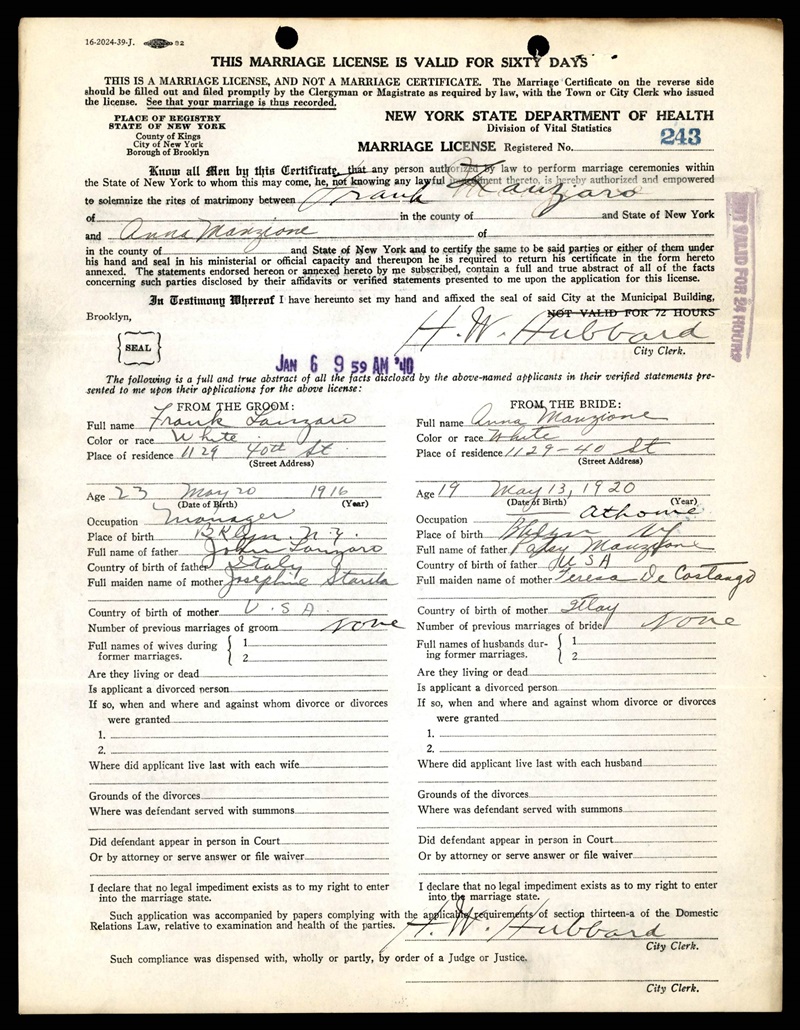 16-2024-39-J. 82
THIS MARRIAGE LICENSE IS VALID FOR SIXTY DAYS
THIS IS A MARRIAGE LICENSE, AND NOT A MARRIAGE CERTIFICATE. The Marriage Certificate on the reverse side
should be filled out and filed promptly by the Clergyman or Magistrate as required by law, with the Town or City Clerk who issued
the license. See that your marriage is thus recorded.
PLACE OF REGISTRY
STATE OF NEW YORK
County of Kings
City of New York
Borough of Brooklyn
NEW YORK STATE DEPARTMENT OF HEALTH
Division of Vital Statistics
MARRIAGE LICENSE Registered No. 243
Know all Men by this Certificate, that any person authorized by law to perform marriage ceremonies within
the State of New York to whom this may come, he, not knowing any lawful impediment thereto, is hereby authorized and empowered
to solemnize the rites of matrimony between Frank Manzaro
of in the county of and State of New York
and Anna Manzione of
in the county of and State of New York and to certify the same to be said parties or either of them under
his hand and seal in his ministerial or official capacity and thereupon he is required to return his certificate in the form hereto
annexed. The statements endorsed hereon or annexed hereto by me subscribed, contain a full and true abstract of all of the facts
concerning such parties disclosed by their affidavits or verified statements presented to me upon the application for this license.
NOT VALID FOR 24 HOURS
In Testimony Whereof I have hereunto set my hand and affixed the seal of said City at the Municipal Building,
Brooklyn, NOT VALID FOR 72 HOURS
H. W. Hubbard
SEAL
City Clerk.
JAN 6 9 59 AM '40
The following is a full and true abstract of all the facts disclosed by the above-named applicants in their verified statements pre-
sented to me upon their applications for the above license:
FROM THE GROOM:
Full name Frank Lanzaro
Color or race White
Place of residence 1129 40th St.
(Street Address)
Age 23 May 20 1916
(Date of Birth) (Year)
Occupation Manager
Place of birth BKlyn. N.Y.
Full name of father John Lanzaro
Country of birth of father Italy
Full maiden name of mother Josephine Starita
Country of birth of mother U.S.A.
Number of previous marriages of groom None
Full names of wives during
former marriages.
1
2
Are they living or dead
Is applicant a divorced person
If so, when and where and against whom divorce or divorces
were granted
1.
2.
Where did applicant live last with each wife
Grounds of the divorces
Where was defendant served with summons
Did defendant appear in person in Court
Or by attorney or serve answer or file waiver
I declare that no legal impediment exists as to my right to enter
into the marriage state.
FROM THE BRIDE:
Full name Anna Manzione
Color or race White
Place of residence 1129-40 St
(Street Address)
Age 19 May 13, 1920
(Date of Birth) (Year)
Occupation At home
Place of birth Bklyn NY
Full name of father Patsy Manzione
Country of birth of father USA
Full maiden name of mother Teresa De Costango
Country of birth of mother Itlay
Number of previous marriages of bride None
Full names of husbands dur-
ing former marriages.
1
2
Are they living or dead
Is applicant a divorced person
If so, when and where and against whom divorce or divorces
were granted
1.
2.
Where did applicant live last with each husband
Grounds of the divorces
Where was defendant served with summons
Did defendant appear in person in Court
Or by attorney or serve answer or file waiver
I declare that no legal impediment exists as to my right to enter
into the marriage state.
Such application was accompanied by papers complying with the applicable requirements of section thirteen-a of the Domestic
Relations Law, relative to examination and health of the parties. H. W. Hubbard
City Clerk.
Such compliance was dispensed with, wholly or partly, by order of a Judge or Justice.
City Clerk.